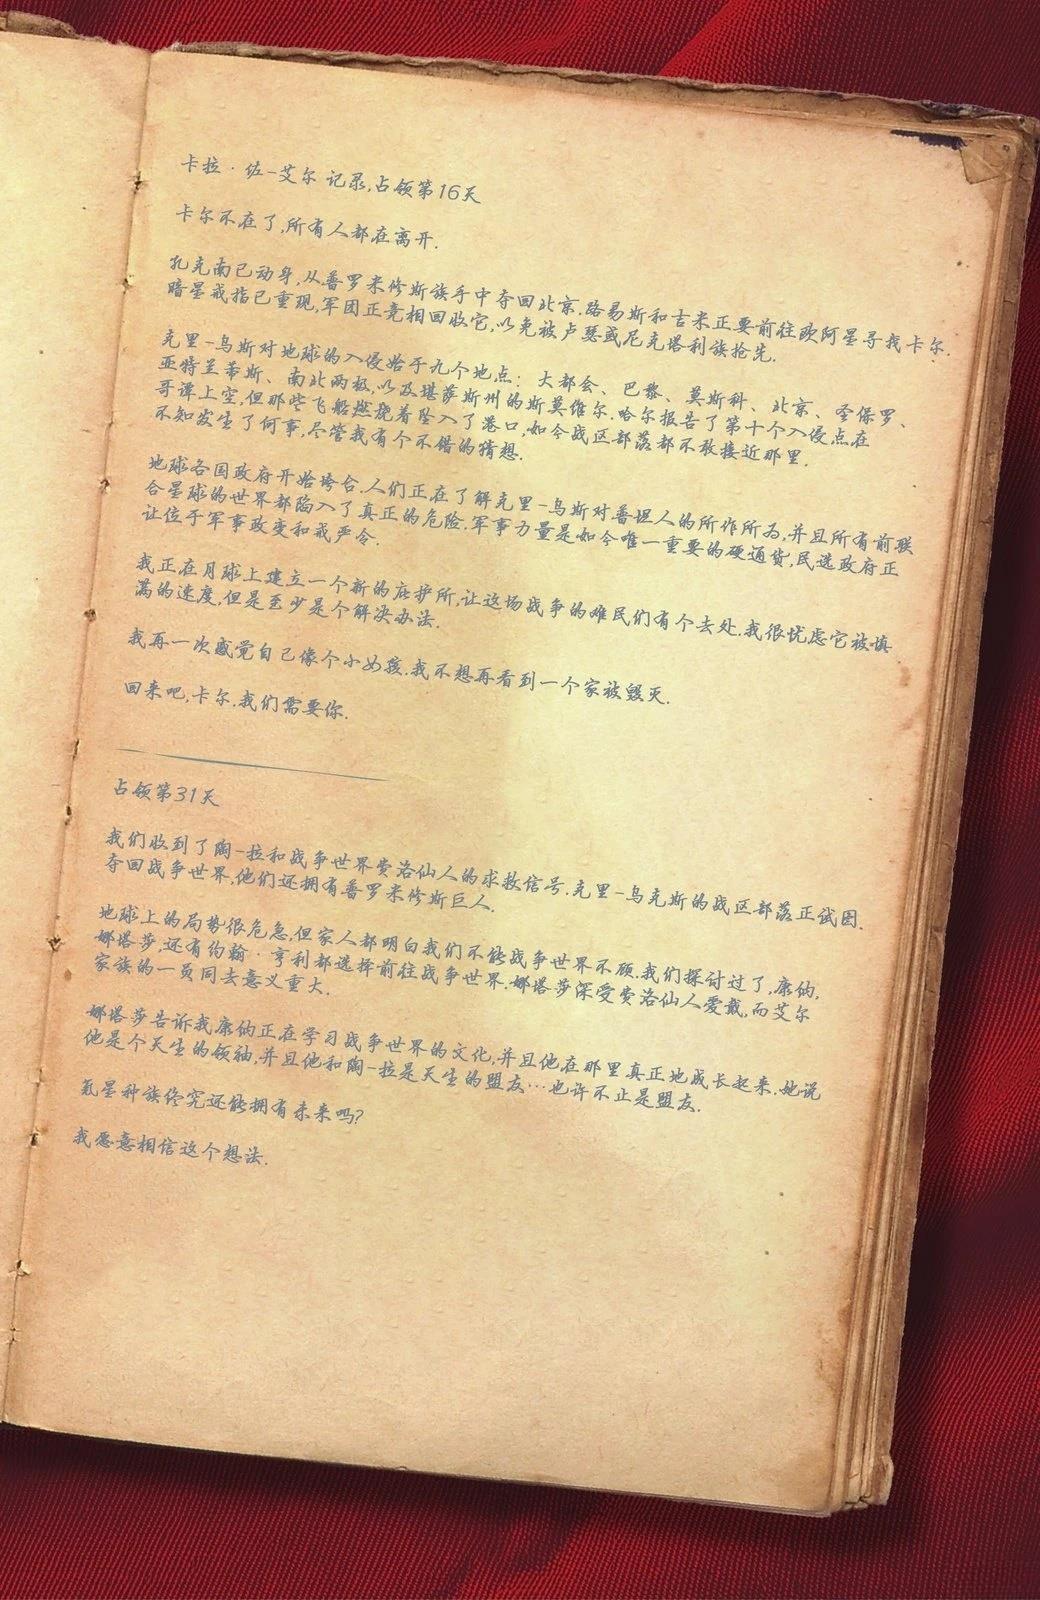 卡拉·佐-艾尔 记录,占领第16天
卡尔不在了,所有人都在离开.
扎克南已动身,从普罗米修斯族手中夺回北京.路易斯和吉米正要前往欧阿星寻找卡尔.
暗星戒指已重现,军团正竞相回收它,以免被卢瑟或尼克塔利族抢先.
克里-乌斯对地球的入侵始于九个地点：大都会、巴黎、莫斯科、北京、圣保罗、
亚特兰蒂斯、南北两极,以及堪萨斯州的斯莫维尔.哈尔报告了第十个入侵点在
哥谭上空,但那些飞船燃烧着坠入了港口,如今战区部落都不敢接近那里.
不知发生了何事,尽管我有个不错的猜想.
地球各国政府开始垮台.人们正在了解克里-乌斯对普坦人的所作所为,并且所有前联
合星球的世界都陷入了真正的危险.军事力量是如今唯一重要的硬通货,民选政府正
让位于军事政变和戒严令.
我正在月球上建立一个新的庇护所,让这场战争的难民们有个去处.我很忧虑它被填
满的速度,但是至少是个解决办法.
我再一次感觉自己像个小女孩.我不想再看到一个家被毁灭.
回来吧,卡尔.我们需要你.
占领第31天
我们收到了陶-拉和战争世界费洛仙人的求救信号.克里-乌克斯的战区部落正试图.
夺回战争世界,他们还拥有普罗米修斯巨人.
地球上的局势很危急,但家人都明白我们不能战争世界不顾.我们探讨过了,康纳,
娜塔莎,还有约翰·亨利都选择前往战争世界.娜塔莎深受费洛仙人爱戴,而艾尔
家族的一员同去意义重大.
娜塔莎告诉我康纳正在学习战争世界的文化,并且他在那里真正地成长起来.她说
他是个天生的领袖,并且他和陶-拉是天生的盟友…也许不止是盟友.
氪星种族终究还能拥有未来吗?
我愿意相信这个想法.